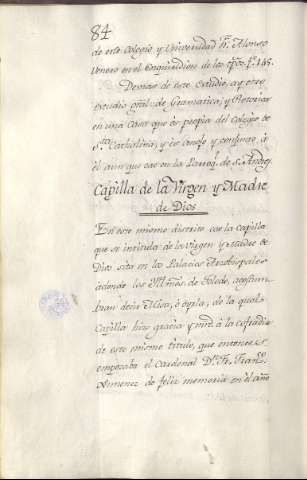 84
de este Colegio, y Universidad Fr. Alonso
Venero en el Enquiridion de los tpõs. fº. 145.
Demas de este Estudio, ay otro
estudio gral. de Gramatica, y Retorica
en una Casa que es propia del Colegio de
Sta. Cathalina, y es anejo y contiguo, á
él aunque cae en la Parroq. de S. Andres
Capilla de la Virgen y Madre
de Dios
En este mismo districto cae la Capilla
que se intitula de la Virgen y Madre de
Dios sita en los Palacios Arzobispales
adonde los de Toledo, acostum
bran decir Misa, ó oyrla, de la qual
Capilla hizo gracia y mrd. á la cofradia
de este mismo titulo, que entonces
empezaba el Cardenal Dn. Fr. Franco.
Ximenez de feliz memoria en el año